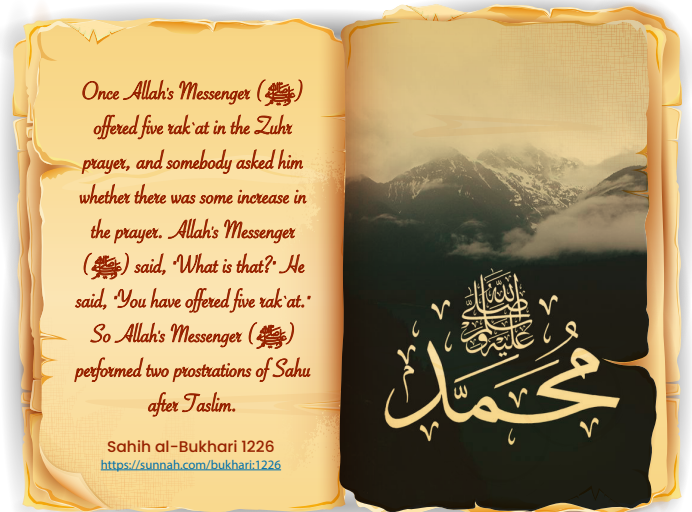 Once Allah's Messenger (ﷺ)
offered five rak`at in the Zuhr
prayer, and somebody asked him
whether there was some increase in
the prayer. Allah's Messenger
(ﷺ) said, "What is that?" He
said, "You have offered five rak`at."
So Allah's Messenger (ﷺ)
performed two prostrations of Sahu
after Taslim.
Sahih al-Bukhari 1226
https://sunnah.com/bukhari:1226
صلى الله عليه وسلم
محمد